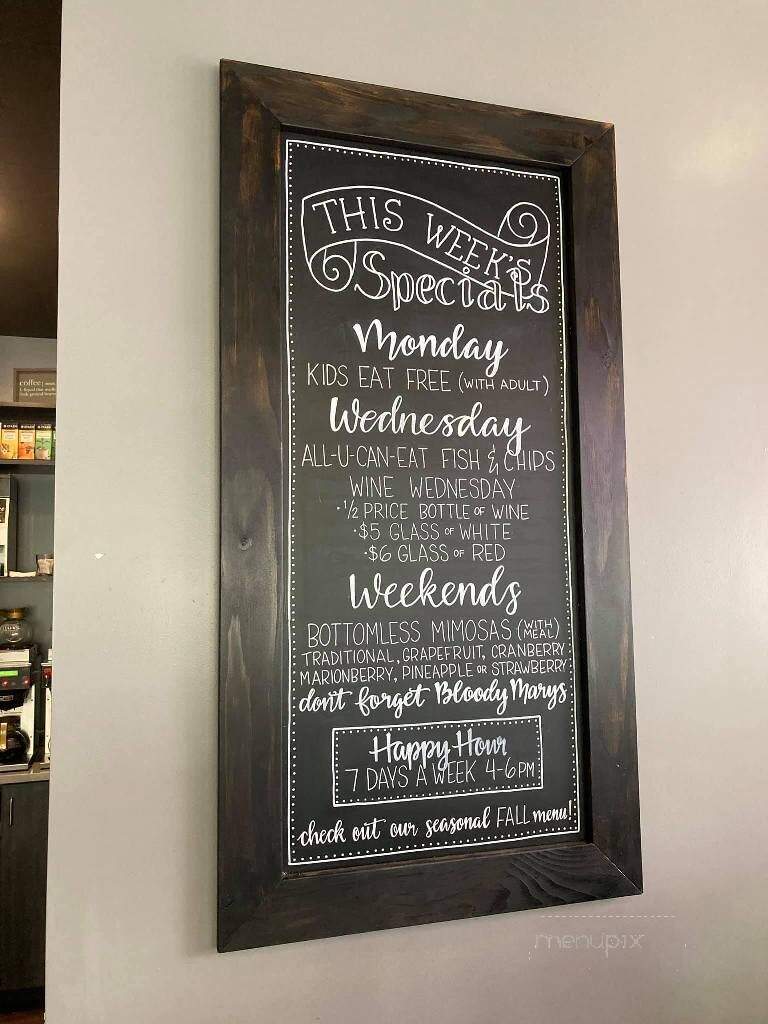 THIS WEEK'S
Specials
Monday
KIDS EAT FREE (WITH ADULT)
Wednesday
ALL-U-CAN-EAT FISH & CHIPS
WINE WEDNESDAY
·½ PRICE BOTTLE OF WINE
·$5 GLASS OF WHITE
·$6 GLASS OF RED
Weekends
BOTTOMLESS MIMOSAS (WITH MEAL)
TRADITIONAL, GRAPEFRUIT, CRANBERRY
MARIONBERRY, PINEAPPLE OR STRAWBERRY
don't forget Bloody Marys
Happy Hour
7 DAYS A WEEK 4-6PM
check out our seasonal FALL menu!
coffee
menupix